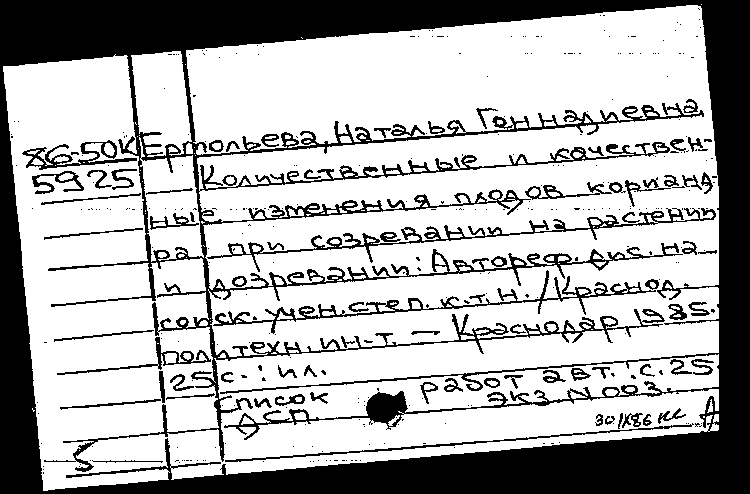 86-50К Ертольева, Наталья Геннадиевна
5925 Количественные и качествен-
ные изменения плодов корианд-
ра при созревании на растении
и дозревании: Автореф. дис. на
соиск. учен. степ. к.т.н. / Краснод.
политехн. ин-т. — Краснодар, 1985.
25 с. : ил.
Список работ авт. : с. 25
ДСП. Экз. N 003.
5 А